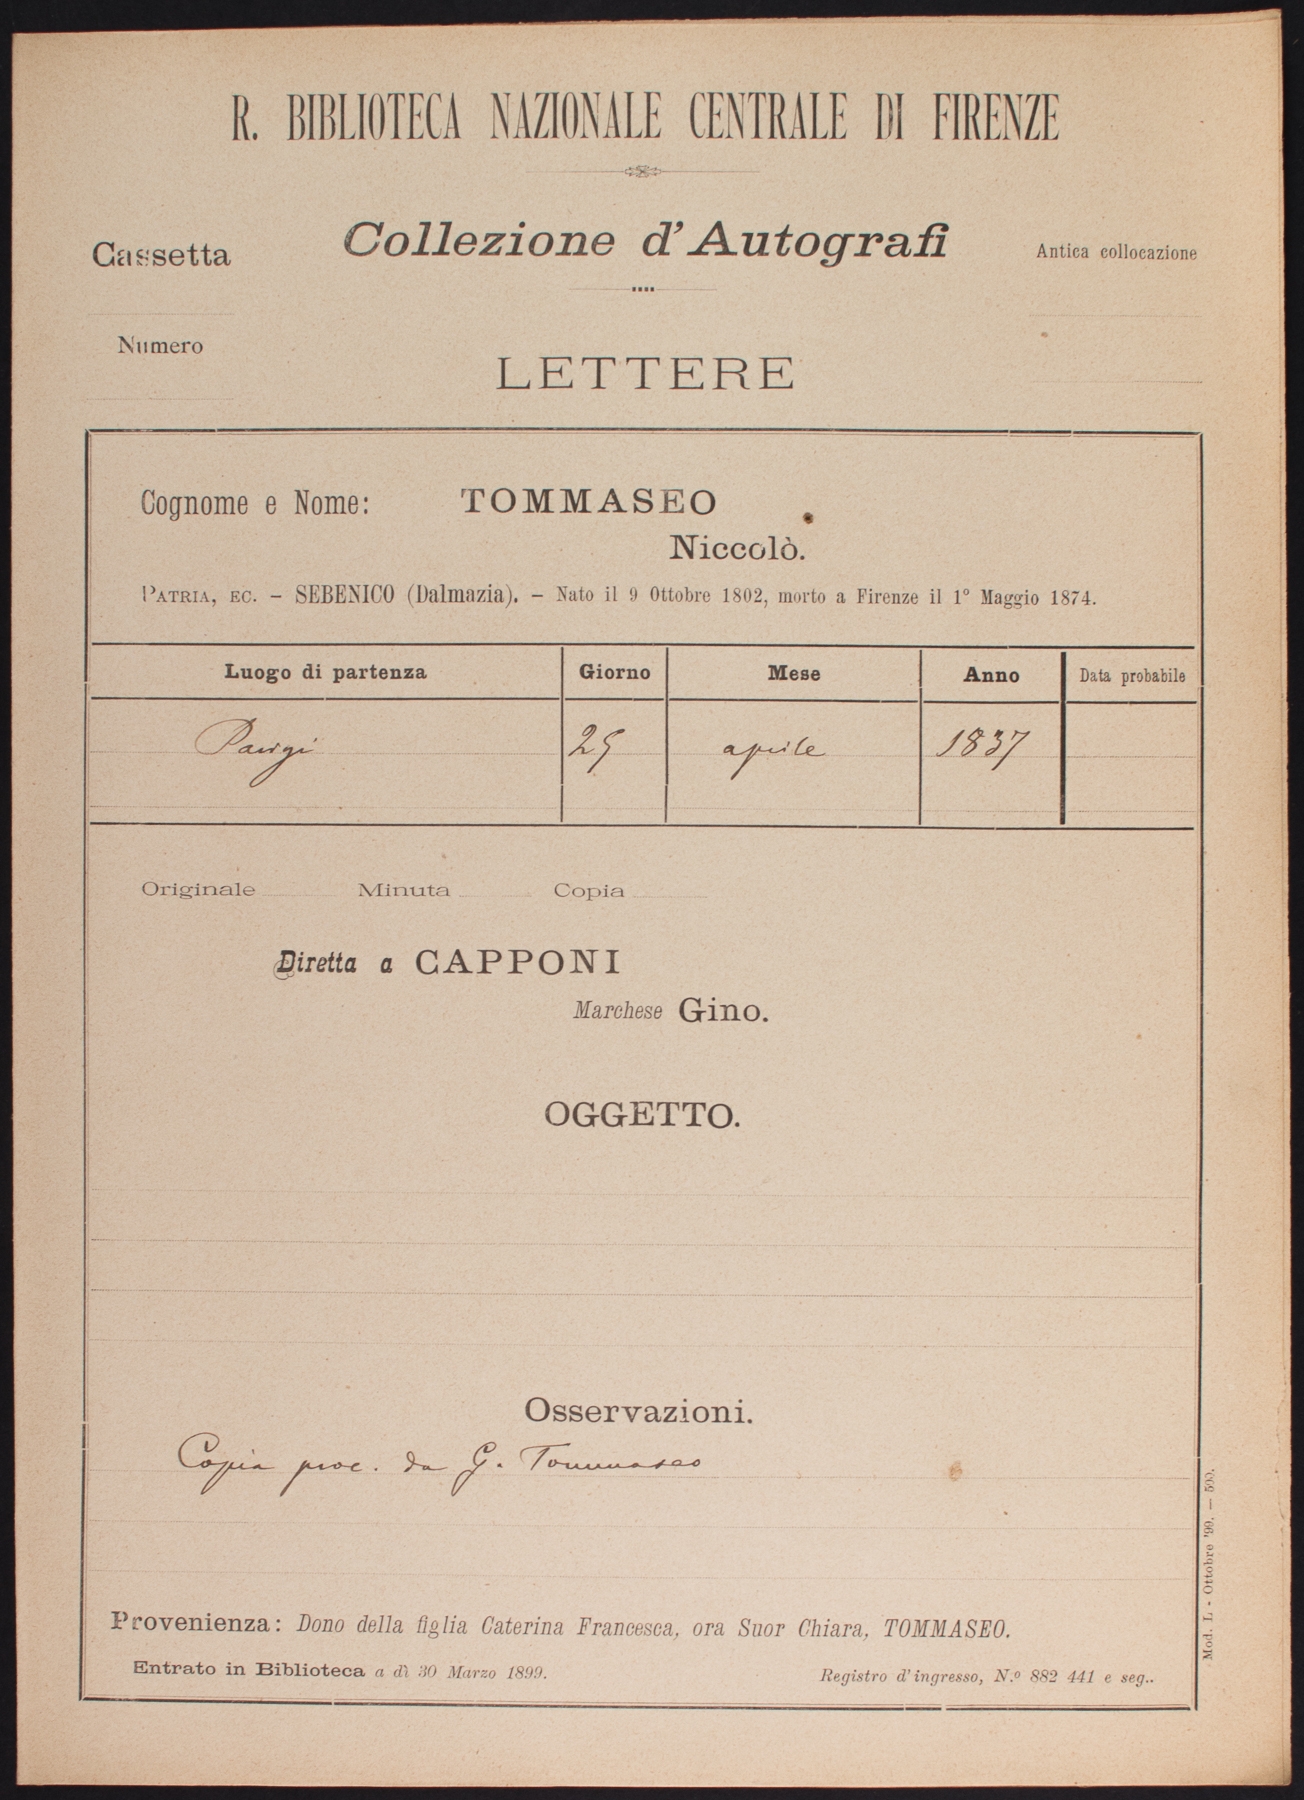 R. BIBLIOTECA NAZIONALE CENTRALE DI FIRENZE
Cassetta
Collezione d'Autografi
Antica collocazione
Numero
LETTERE
Cognome e Nome: TOMMASEO
Niccolò.
PATRIA, EC. – SEBENICO (Dalmazia). – Nato il 9 Ottobre 1802, morto a Firenze il 1º Maggio 1874.
Luogo di partenza Giorno Mese Anno Data probabile
Parigi 25 aprile 1837
Originale Minuta Copia
Diretta a CAPPONI
Marchese Gino.
OGGETTO.
Osservazioni.
Copia proc. da G. Tommaseo
Provenienza: Dono della figlia Caterina Francesca, ora Suor Chiara, TOMMASEO.
Entrato in Biblioteca a dì 30 Marzo 1899.
Registro d'ingresso, N.º 882 441 e seg..
Mod. L - Ottobre '99. — 500.